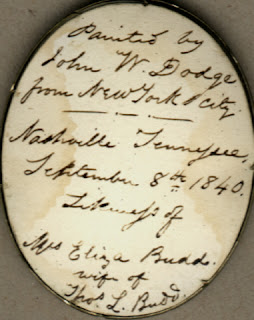 Painted by
John W. Dodge
from New York city
Nashville Tennessee,
September 8th 1840.
Likeness of
Mrs Eliza Budd.
wife of
Thos L. Budd.